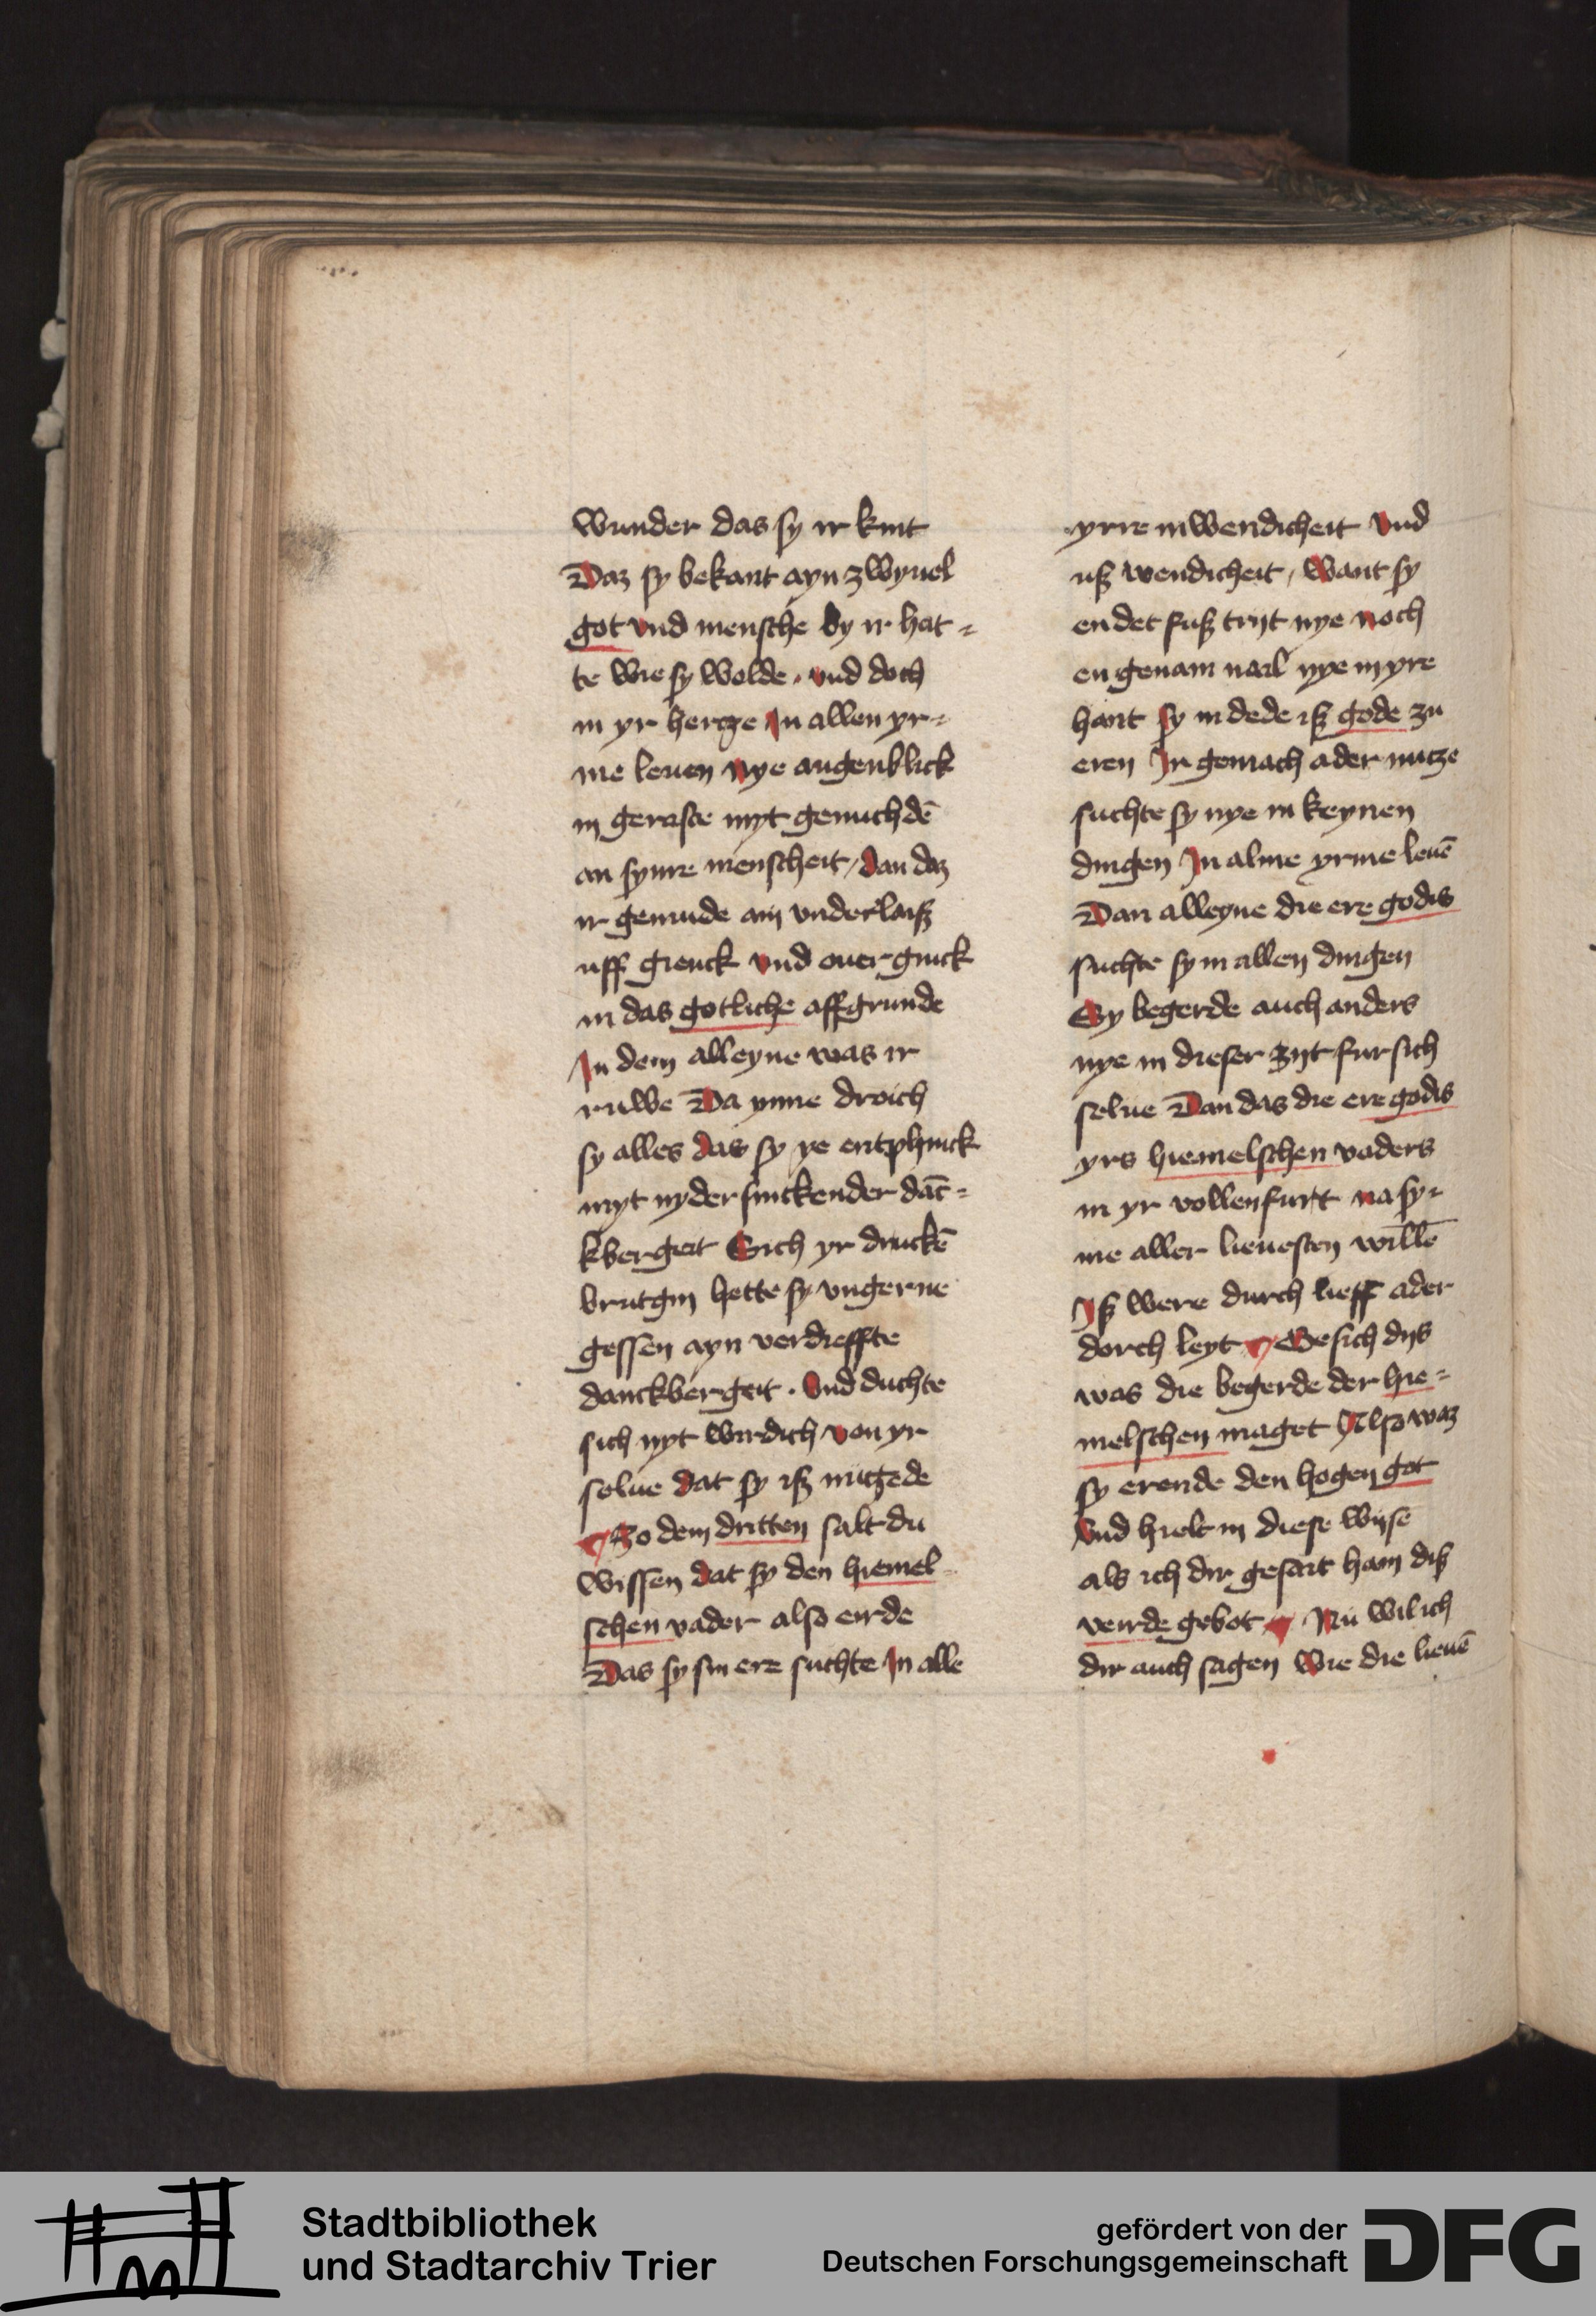 wunder das sy ir kint
Daz sy bekant ayn zwyuel
got vnd mensche by ir hat=
te wie sy wolde . vnd doch
in yr hertze In allen yr=
me leuen nye augenblick
in geraste myt genuchdē
an synre menscheit / dan daz
ir gemude ain vnderlaiſz
uff gienck vnd ouerginck
in das gotliche affgrunde
In dem alleyne was ir
ruwe Da ynne droich
sy alles das sy ye entphinck
myt nydersinckender dāc=
kbergeit Sich yr druckē
brutgin hette sy vngerne
gessen ayn verdieffte
danckbergeit . Vnd duchte
sich nyt wirdich von yr
selue dat sy iſz nutzede
Zo dem dritten salt du
wissen dat sy den hiemel
schen vader also eirde
Das sy sin ere suchte In alle
yrre inwendicheit Vnd
uſz wendicheit / want sy
en det fuſz trijt nye noch
en genam nail nye in yre
hant sy in dede iſz gode zu
eren Ir gemach ader nutze
suchte sy nye in keynen
dingen In alme yrme leuē
Dan alleyne die ere godis
suchte sy in allen dingen
Sy begerde auch anders
nye in dieser zijt fur sich
selue Dan das die ere godis
yrs hiemelschen vaders
in yr vollenfurt na sy=
me aller lieuesten willē
Iſz were durch lieff ader
dorch leyt Gesich dijs
was die begerde der hie=
melschen maget Also waz
sy erende den hogen got
Vnd hielt in diese wijse
als ich dir gesait hain diſz
veirde gebot Nu wil ich
dir auch sagen wie die lieuē
Stadtbibliothek
und Stadtarchiv Trier
gefördert von der
Deutschen Forschungsgemeinschaft
DFG